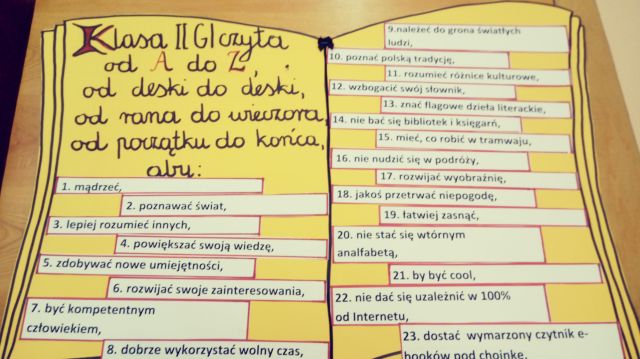 Klasa II GI czyta
od A do Z,
od deski do deski,
od rana do wieczora,
od początku do końca,
aby:
1. mądrzeć,
2. poznawać świat,
3. lepiej rozumieć innych,
4. powiększać swoją wiedzę,
5. zdobywać nowe umiejętności,
6. rozwijać swoje zainteresowania,
7. być kompetentnym
człowiekiem,
8. dobrze wykorzystać wolny czas,
9.należeć do grona światłych
ludzi,
10. poznać polską tradycję,
11. rozumieć różnice kulturowe,
12. wzbogacić swój słownik,
13. znać flagowe dzieła literackie,
14. nie bać się bibliotek i księgarń,
15. mieć, co robić w tramwaju,
16. nie nudzić się w podróży,
17. rozwijać wyobraźnię,
18. jakoś przetrwać niepogodę,
19. łatwiej zasnąć,
20. nie stać się wtórnym
analfabetą,
21. by być cool,
22. nie dać się uzależnić w 100%
od Internetu,
23. dostać wymarzony czytnik e-
booków pod choinkę,